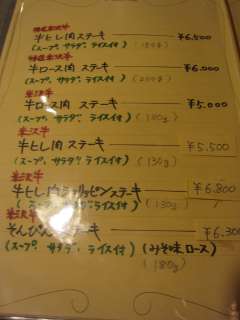 特選米沢牛
牛ヒレ肉 ステーキ ¥6,500
(スープ、サラダ、ライス付)
特選米沢牛
牛ロース肉 ステーキ ¥6,000
(スープ、サラダ、ライス付) (200g)
米沢牛
牛ロース肉 ステーキ ¥5,000
(スープ、サラダ、ライス付) (180g)
米沢牛
牛ヒレ肉 ステーキ ¥5,500
(スープ、サラダ、ライス付) (130g)
米沢牛
牛ヒレ肉 ステーキ ¥6,800
(スープ、サラダ、ライス付) (130g)
米沢牛
ステーキ ¥6,300
(スープ、サラダ、ライス付) (みそ味ロース)
(180g)